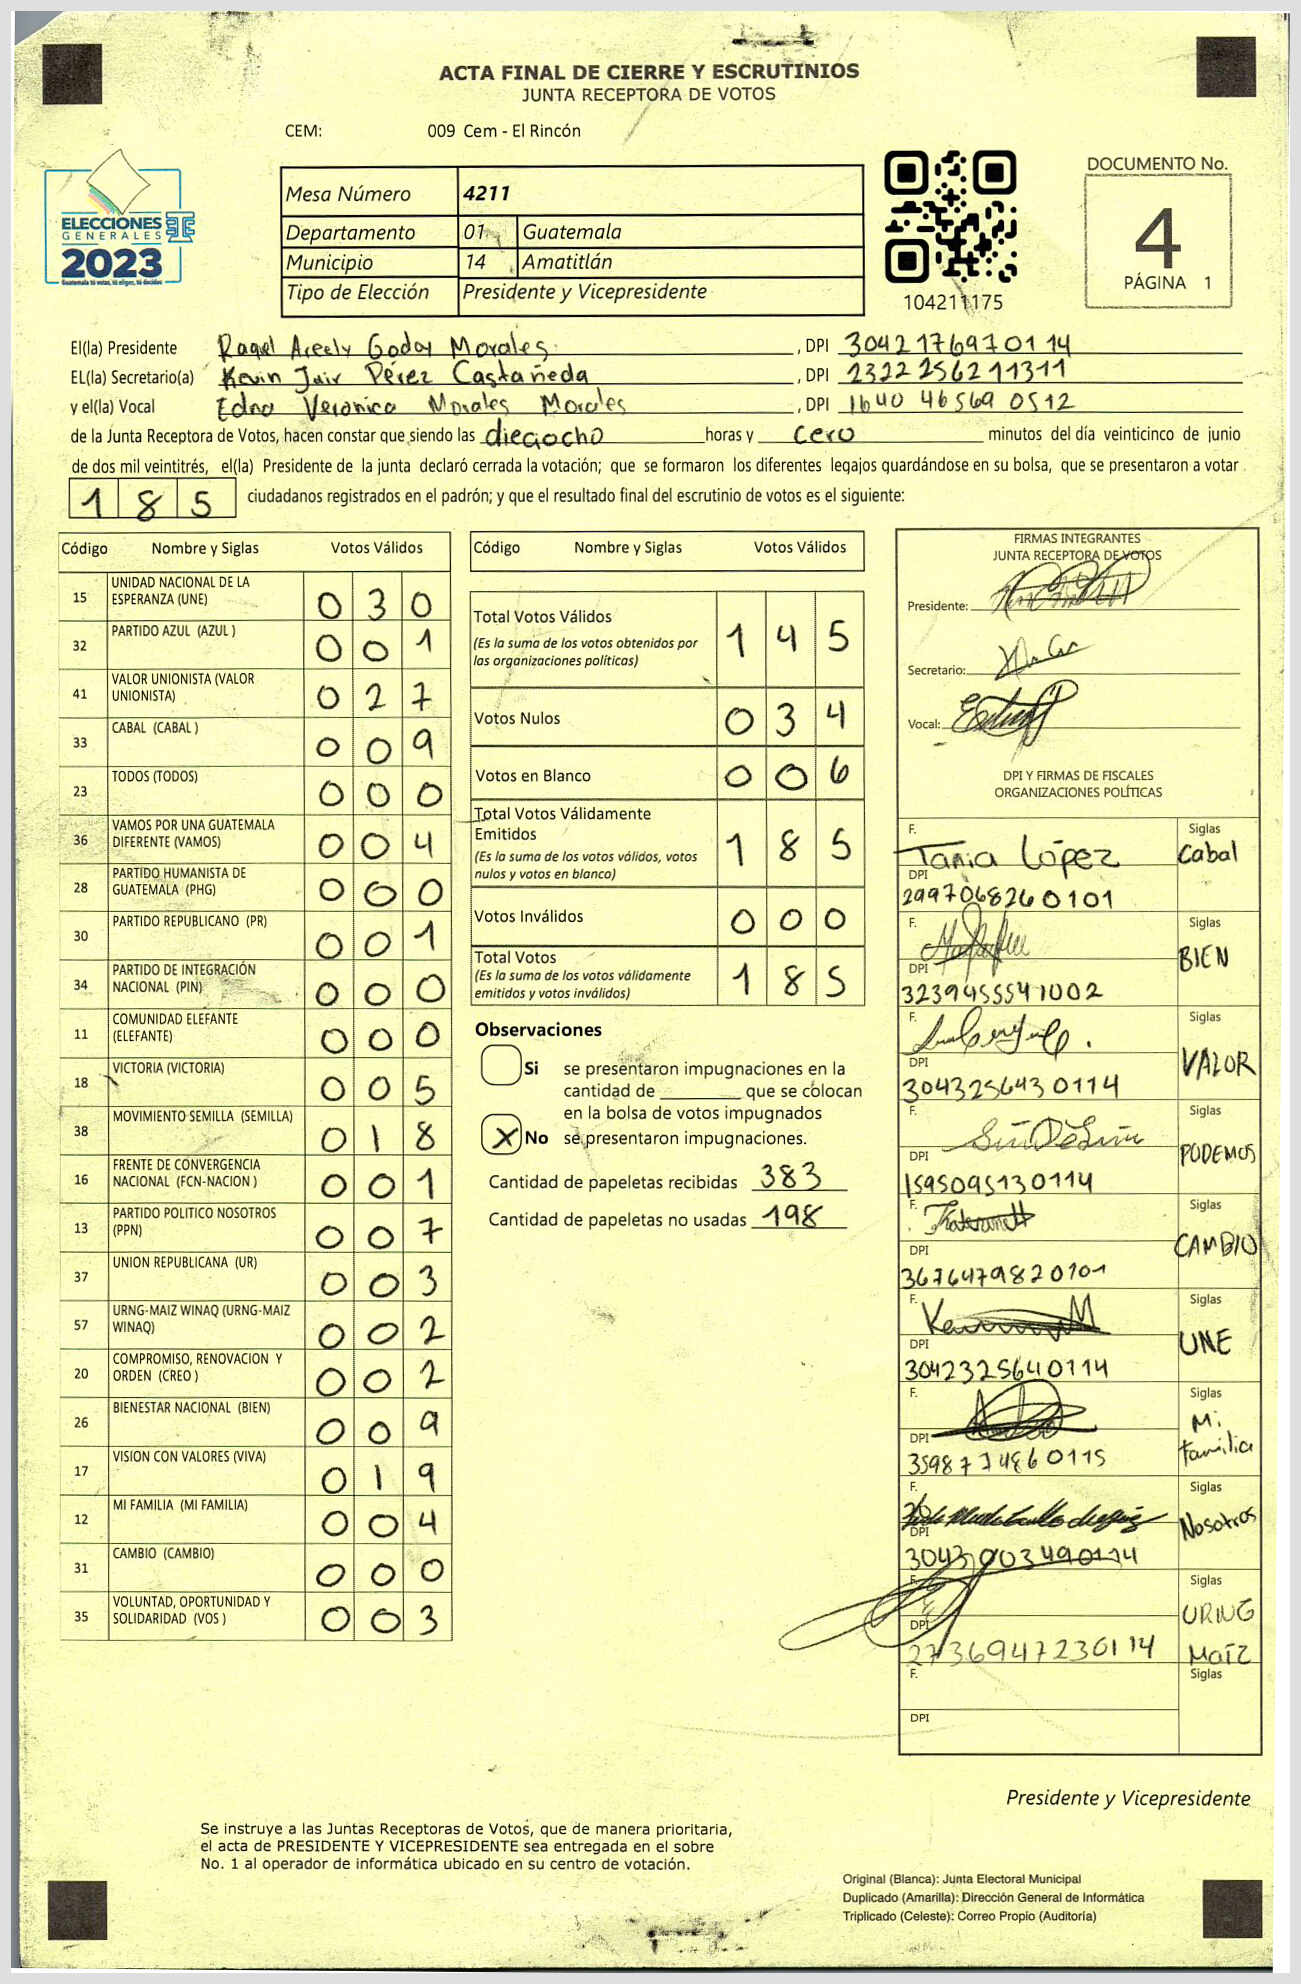 ACTA FINAL DE CIERRE Y ESCRUTINIOS
JUNTA RECEPTORA DE VOTOS
CEM: 009 Cem - El Rincón
ELECCIONES
GENERALES
2023
Guatemala tú votas, tú eliges, tú decides
Mesa Número 4211
Departamento 01 Guatemala
Municipio 14 Amatitlán
Tipo de Elección Presidente y Vicepresidente
104211175
DOCUMENTO No.
4
PÁGINA 1
El(la) Presidente Raquel Areely Godoy Morales, DPI 3042176970114
EL(la) Secretario(a) Kevin Jair Pérez Castañeda, DPI 2322 256211311
y el(la) Vocal Edna Veronica Morales Morales, DPI 1640 46569 0512
de la Junta Receptora de Votos, hacen constar que siendo las dieciocho horas y cero minutos del día veinticinco de junio
de dos mil veintitrés, el(la) Presidente de la junta declaró cerrada la votación; que se formaron los diferentes legajos guardándose en su bolsa, que se presentaron a votar
185 ciudadanos registrados en el padrón; y que el resultado final del escrutinio de votos es el siguiente:
Código Nombre y Siglas Votos Válidos
15 UNIDAD NACIONAL DE LA ESPERANZA (UNE) 0 3 0
32 PARTIDO AZUL (AZUL ) 0 0 1
41 VALOR UNIONISTA (VALOR UNIONISTA) 0 2 7
33 CABAL (CABAL ) 0 0 9
23 TODOS (TODOS) 0 0 0
36 VAMOS POR UNA GUATEMALA DIFERENTE (VAMOS) 0 0 4
28 PARTIDO HUMANISTA DE GUATEMALA (PHG) 0 0 0
30 PARTIDO REPUBLICANO (PR) 0 0 1
34 PARTIDO DE INTEGRACIÓN NACIONAL (PIN) 0 0 0
11 COMUNIDAD ELEFANTE (ELEFANTE) 0 0 0
18 VICTORIA (VICTORIA) 0 0 5
38 MOVIMIENTO SEMILLA (SEMILLA) 0 1 8
16 FRENTE DE CONVERGENCIA NACIONAL (FCN-NACION ) 0 0 1
13 PARTIDO POLITICO NOSOTROS (PPN) 0 0 7
37 UNION REPUBLICANA (UR) 0 0 3
57 URNG-MAIZ WINAQ (URNG-MAIZ WINAQ) 0 0 2
20 COMPROMISO, RENOVACION Y ORDEN (CREO ) 0 0 2
26 BIENESTAR NACIONAL (BIEN) 0 0 9
17 VISION CON VALORES (VIVA) 0 1 9
12 MI FAMILIA (MI FAMILIA) 0 0 4
31 CAMBIO (CAMBIO) 0 0 0
35 VOLUNTAD, OPORTUNIDAD Y SOLIDARIDAD (VOS ) 0 0 3
Código Nombre y Siglas Votos Válidos
Total Votos Válidos 1 4 5
(Es la suma de los votos obtenidos por las organizaciones políticas)
Votos Nulos 0 3 4
Votos en Blanco 0 0 6
Total Votos Válidamente Emitidos 1 8 5
(Es la suma de los votos válidos, votos nulos y votos en blanco)
Votos Inválidos 0 0 0
Total Votos 1 8 5
(Es la suma de los votos válidamente emitidos y votos inválidos)
Observaciones
Si se presentaron impugnaciones en la
cantidad de ________ que se colocan
en la bolsa de votos impugnados
X No se presentaron impugnaciones.
Cantidad de papeletas recibidas 383
Cantidad de papeletas no usadas 198
FIRMAS INTEGRANTES
JUNTA RECEPTORA DE VOTOS
Presidente:
Secretario:
Vocal:
DPI Y FIRMAS DE FISCALES
ORGANIZACIONES POLÍTICAS
F. Tania López Siglas Cabal
DPI 2997068260101
F. Siglas BIEN
DPI 3239455541002
F. Siglas VALOR
DPI 3043256430114
F. Siglas PODEMOS
DPI 1595095130114
F. Siglas CAMBIO
DPI 3676479820101
F. Siglas UNE
DPI 3042325640114
F. Siglas Mi familia
DPI 3598774860115
F. Siglas Nosotros
DPI 3043003490114
F. Siglas URNG Maíz
DPI 2736947230114
F. Siglas
DPI
Presidente y Vicepresidente
Se instruye a las Juntas Receptoras de Votos, que de manera prioritaria,
el acta de PRESIDENTE Y VICEPRESIDENTE sea entregada en el sobre
No. 1 al operador de informática ubicado en su centro de votación.
Original (Blanca): Junta Electoral Municipal
Duplicado (Amarilla): Dirección General de Informática
Triplicado (Celeste): Correo Propio (Auditoría)